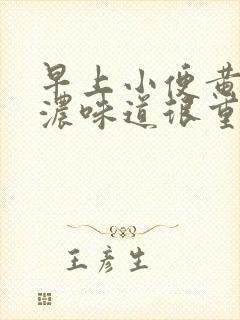 早上小便黄
浓味道很重
王彦生